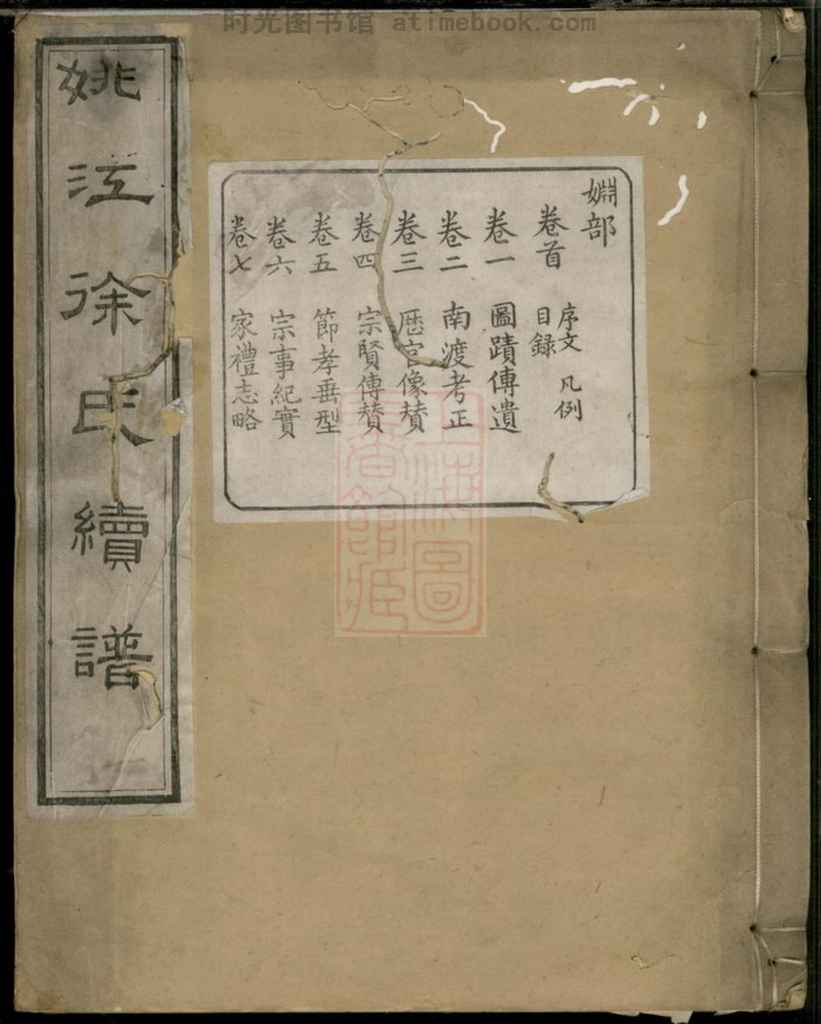 时光图书馆 atimebook.com
姚江徐氏續譜
婣部
卷首 序文 凡例
目録
卷一 圖蹟傳遺
卷二 南渡考正
卷三 歴官像賛
卷四 宗賢傳賛
卷五 節孝垂型
卷六 宗事紀實
卷七 家禮志略
上海圖
書館藏